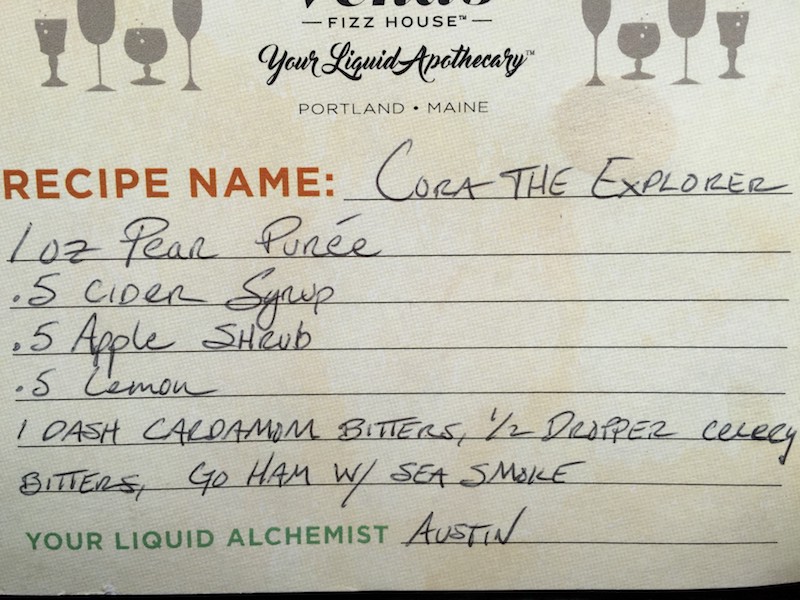 FIZZ HOUSE™
Your Liquid Apothecary™
PORTLAND • MAINE
RECIPE NAME: CORA THE EXPLORER
1 oz Pear Purée
.5 CIDER Syrup
.5 Apple SHRub
.5 Lemon
1 DASH CARDAMOM BITTERS, 1/2 DROPPER celery
BITTERS, GO HAM W/ SEA SMOKE
YOUR LIQUID ALCHEMIST AUSTIN